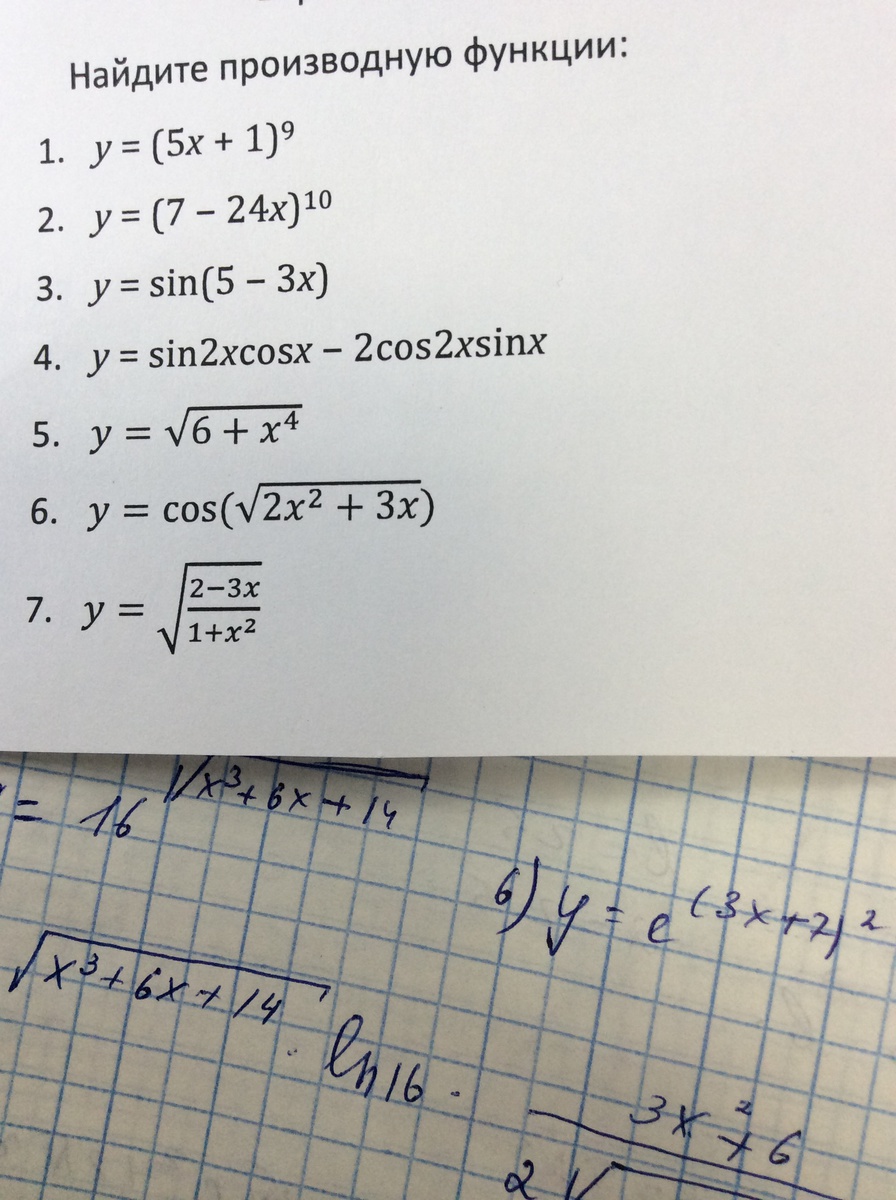 Найдите производную функции:
1. y = (5x + 1)⁹
2. y = (7 − 24x)¹⁰
3. y = sin(5 − 3x)
4. y = sin2xcosx − 2cos2xsinx
5. y = √(6 + x⁴)
6. y = cos(√(2x² + 3x))
7. y = √((2−3x)/(1+x²))
= 16^√(x³+6x+14)
6) y = e^(3x+7)²
√(x³+6x+14) · ln16 ·
3x²+6
2√